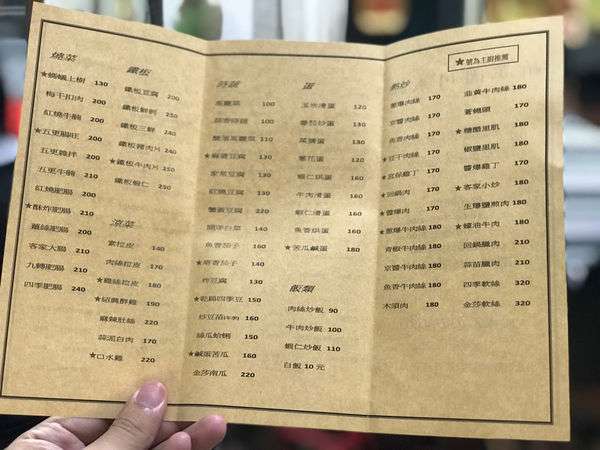 ★號為主廚推薦
燒菜
★螞蟻上樹 130
梅干扣肉 200
紅燒牛腩 200
★五更腸旺 200
五更雜拌 200
五更牛腩 210
紅燒肥腸 200
★酥炸肥腸 210
薑絲肥腸 210
客家大腸 210
九轉肥腸 210
四季肥腸 240
鐵板
鐵板豆腐 200
鐵板鮮蚵 250
鐵板三鮮 240
鐵板豬肉片 240
★鐵板牛肉片 250
鐵板蝦仁 250
涼菜
素拉皮 140
肉絲拉皮 170
★雞絲拉皮 210
★紹興醉雞 190
麻辣肚絲 200
蒜泥白肉 170
★口水雞 220
時蔬
高麗菜 100
蒜香時蔬 100
110
★麻婆豆腐 120
家常豆腐 130
紅燒豆腐 130
蟹黃豆腐 220
開洋白菜 140
魚香茄子 140
★塔香茄子 140
炸豆腐 130
★乾扁四季豆 150
160
絲瓜蛤蜊 150
★鹹蛋苦瓜 160
金莎南瓜 220
蛋
玉米滑蛋 120
番茄炒蛋 130
菜脯蛋 130
蔥花蛋 120
蝦仁烘蛋 160
牛肉滑蛋 160
蝦仁滑蛋 160
魚香烘蛋 160
★苦瓜鹹蛋 180
飯類
肉絲炒飯 90
牛肉炒飯 100
蝦仁炒飯 110
白飯 10 元
熱炒
蔥爆肉絲 170
京醬肉絲 170
魚香肉絲 170
★豆干肉絲 170
★宮保雞丁 170
★回鍋肉 170
★醬爆肉 170
★蔥爆牛肉絲 180
青椒牛肉絲 180
京醬牛肉絲 180
魚香牛肉絲 180
木須肉 180
韭黃牛肉絲 180
蒼蠅頭 170
★糖醋里肌 180
椒鹽里肌 180
醬爆雞丁 180
★客家小炒 180
生爆鹽煎肉 180
★蠔油牛肉 180
回鍋臘肉 210
蒜苗臘肉 210
四季軟絲 320
金莎軟絲 320